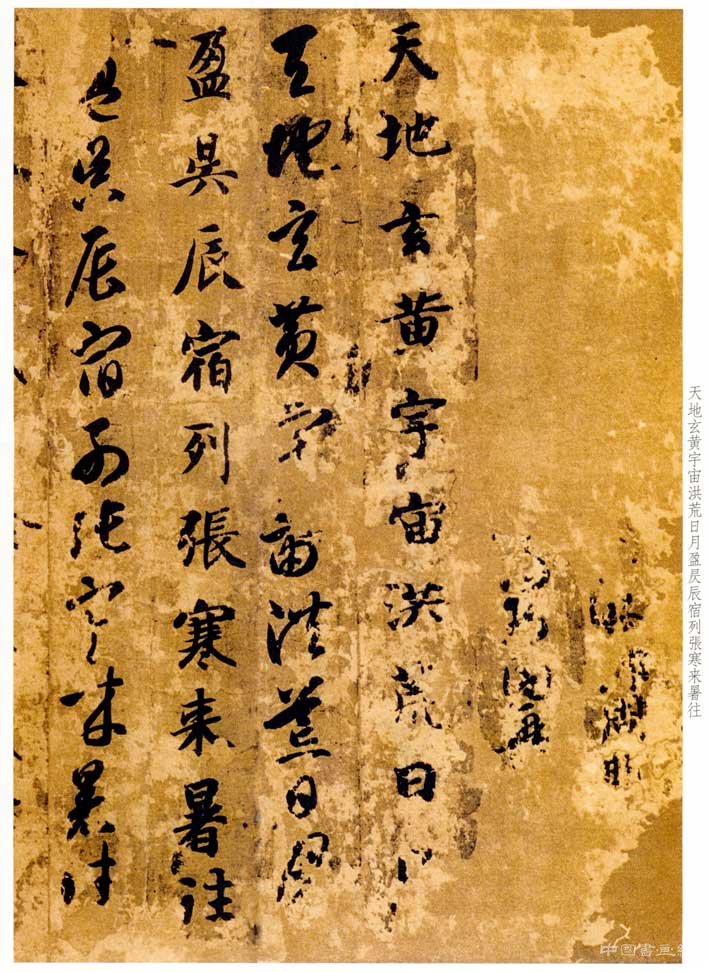 天地玄黄宇宙洪荒日月盈昃辰宿列張寒来暑往
天地玄黄宇宙洪荒日月
天地玄黄宇宙洪荒日月
盈昃辰宿列張寒来暑往
盈昃辰宿列張寒来暑往
中國書畫